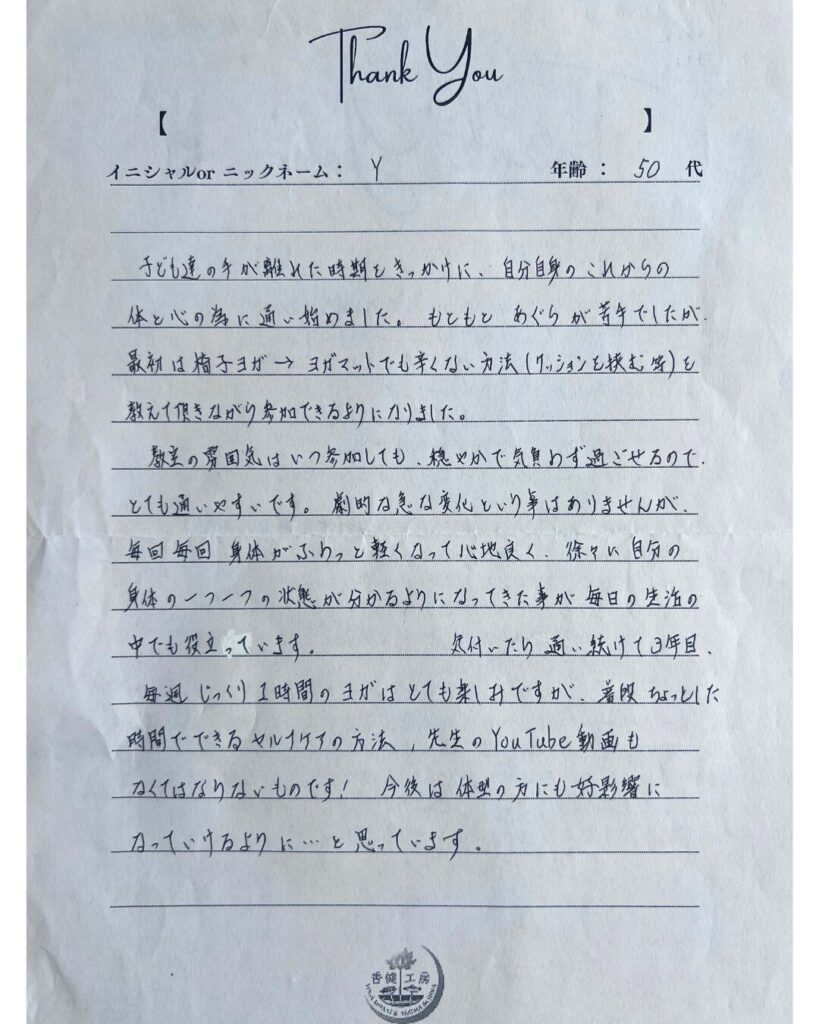 Thank You
【 】
イニシャルor ニックネーム： Y 年齢： 50 代
子ども達の手が離れた時期をきっかけに、自分自身のこれからの
体と心の為に通い始めました。もともと あぐらが苦手でしたが、
最初は椅子ヨガ→ヨガマットでも辛くない方法(クッションを挟む等)を
教えて頂きながら参加できるようになりました。
教室の雰囲気はいつ参加しても、穏やかで気負わず過ごせるので、
とても通いやすいです。劇的な急な変化という事はありませんが、
毎回毎回 身体がふわっと軽くなって心地良く、徐々に自分の
身体の一つ一つの状態が分かるようになってきた事が毎日の生活の
中でも役立っています。 気付いたら通い続けて3年目、
毎週じっくり1時間のヨガはとても楽しみですが、普段ちょっとした
時間でできるセルフケアの方法、先生のYouTube動画も
なくてはならないものです! 今後は体型の方にも好影響に
なっていけるように…と思っています。
香健工房